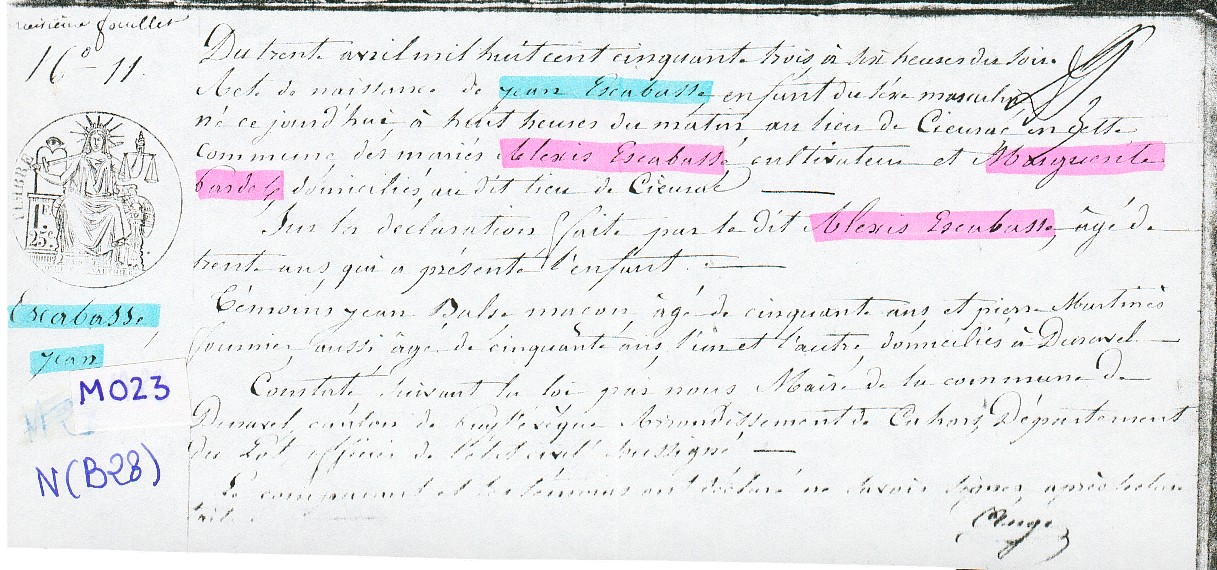 feuillet
16 - 11.
TIMBRE
1F.
25c.
Escabasse,
jean
M023
N(B28)
Du trente avril mil huit cent cinquante trois à six heures du soir.
Acte de naissance de jean Escabasse, enfant du sèxe masculin
né ce jourd'hui à huit heures du matin, au lieu de Cieurac en cette
commune, des mariés Alexis Escabasse, cultivateur et Marguerite
domiciliés, au dit lieu de Cieurac
Sur la déclaration faite par le dit Alexis Escabasse, âgé de
trente ans, qui a présenté l'enfant.
Témoins jean maçon, âgé de cinquante ans, et pierre Martinès
fournier, aussi âgé de cinquante ans, l'un et l'autre, domiciliés à Duravel.
Constaté suivant la loi par nous Maire de la commune de
Duravel, canton de Puy l'évèque Arrondissement de Cahors, Département
du Lot officier de l'état civil soussigné
Le comparant et les témoins ont déclaré ne savoir signer, après lecture
faite.